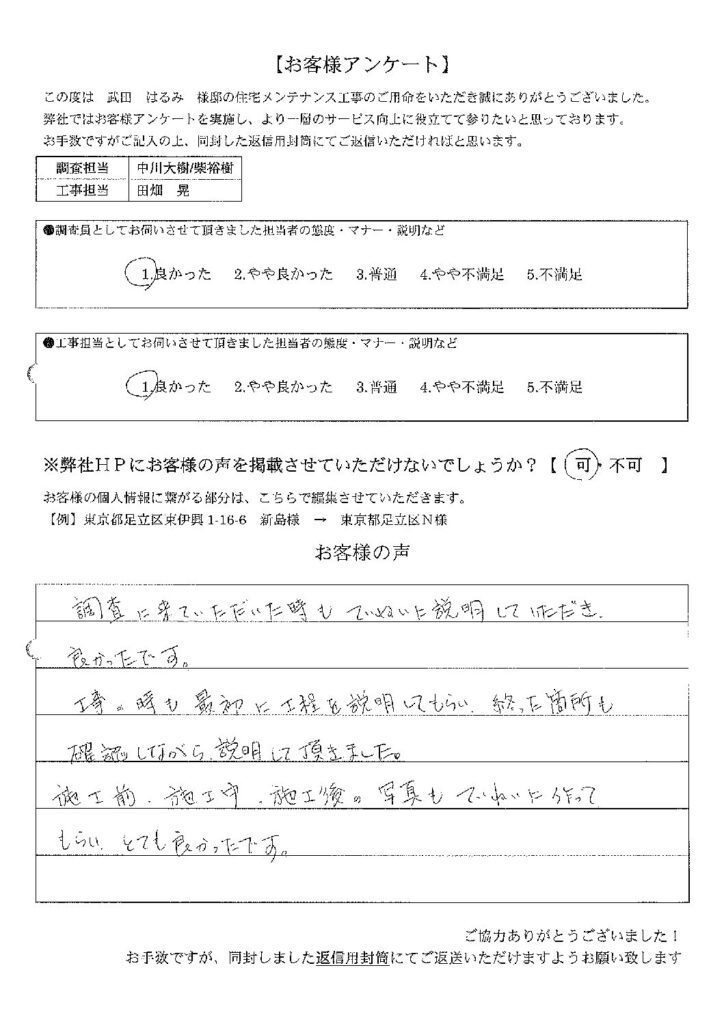 【お客様アンケート】
この度は　武田　はるみ　様邸の住宅メンテナンス工事のご用命をいただき誠にありがとうございました。
弊社ではお客様アンケートを実施し、より一層のサービス向上に役立てて参りたいと思っております。
お手数ですがご記入の上、同封した返信用封筒にてご返信いただければと思います。
調査担当　中川大樹/柴裕樹
工事担当　田畑　晃
❶調査員としてお伺いさせて頂きました担当者の態度・マナー・説明など
1.良かった　2.やや良かった　3.普通　4.やや不満足　5.不満足
❷工事担当としてお伺いさせて頂きました担当者の態度・マナー・説明など
1.良かった　2.やや良かった　3.普通　4.やや不満足　5.不満足
※弊社ＨＰにお客様の声を掲載させていただけないでしょうか？【　可・不可　】
お客様の個人情報に繋がる部分は、こちらで編集させていただきます。
【例】東京都足立区東伊興 1-16-6　新島様　→　東京都足立区Ｎ様
お客様の声
調査に来ていただいた時も ていねいに説明していただき、
良かったです。
工事の時も最初に工程を説明してもらい、終った箇所も
確認しながら、説明して頂きました。
施工前、施工中、施工後の写真も ていねいに作って
もらい、とても良かったです。
ご協力ありがとうございました！
お手数ですが、同封しました返信用封筒にてご返送いただけますようお願い致します